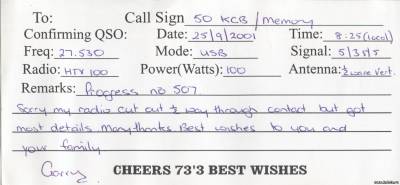 To: Call Sign 50 KCB / Memory
Confirming QSO: Date: 25/9/2001 Time: 8:25 (local)
Freq: 27.530 Mode: USB Signal: 5/3/5/5
Radio: HTV 100 Power(Watts): 100 Antenna: ½ wave Vert.
Remarks: Progress no 507
Sorry my radio cut out ½ way through contact but got
most details. Many thanks Best wishes to you and
your family
Garry CHEERS 73'3 BEST WISHES